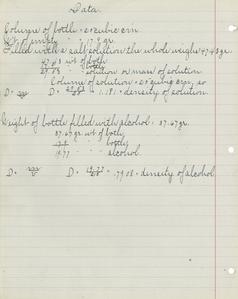 Data.
Volume of bottle = 25 cubic cm
Wt. of empty " = 17.9 gr.
Filled with a salt solution the whole weighs 47.43 gr.
47.43 wt of both
" " bottle
" solution or mass of solution
Volume of solution = 25 cu cm, so
D = D = = 1.181 = density of solution.
Weight of bottle filled with alcohol = 37.67 gr.
37.67 gr. wt of both
17.9 " " bottle
19.77 " " alcohol
D = D = 19.77 = .7908 = density of alcohol